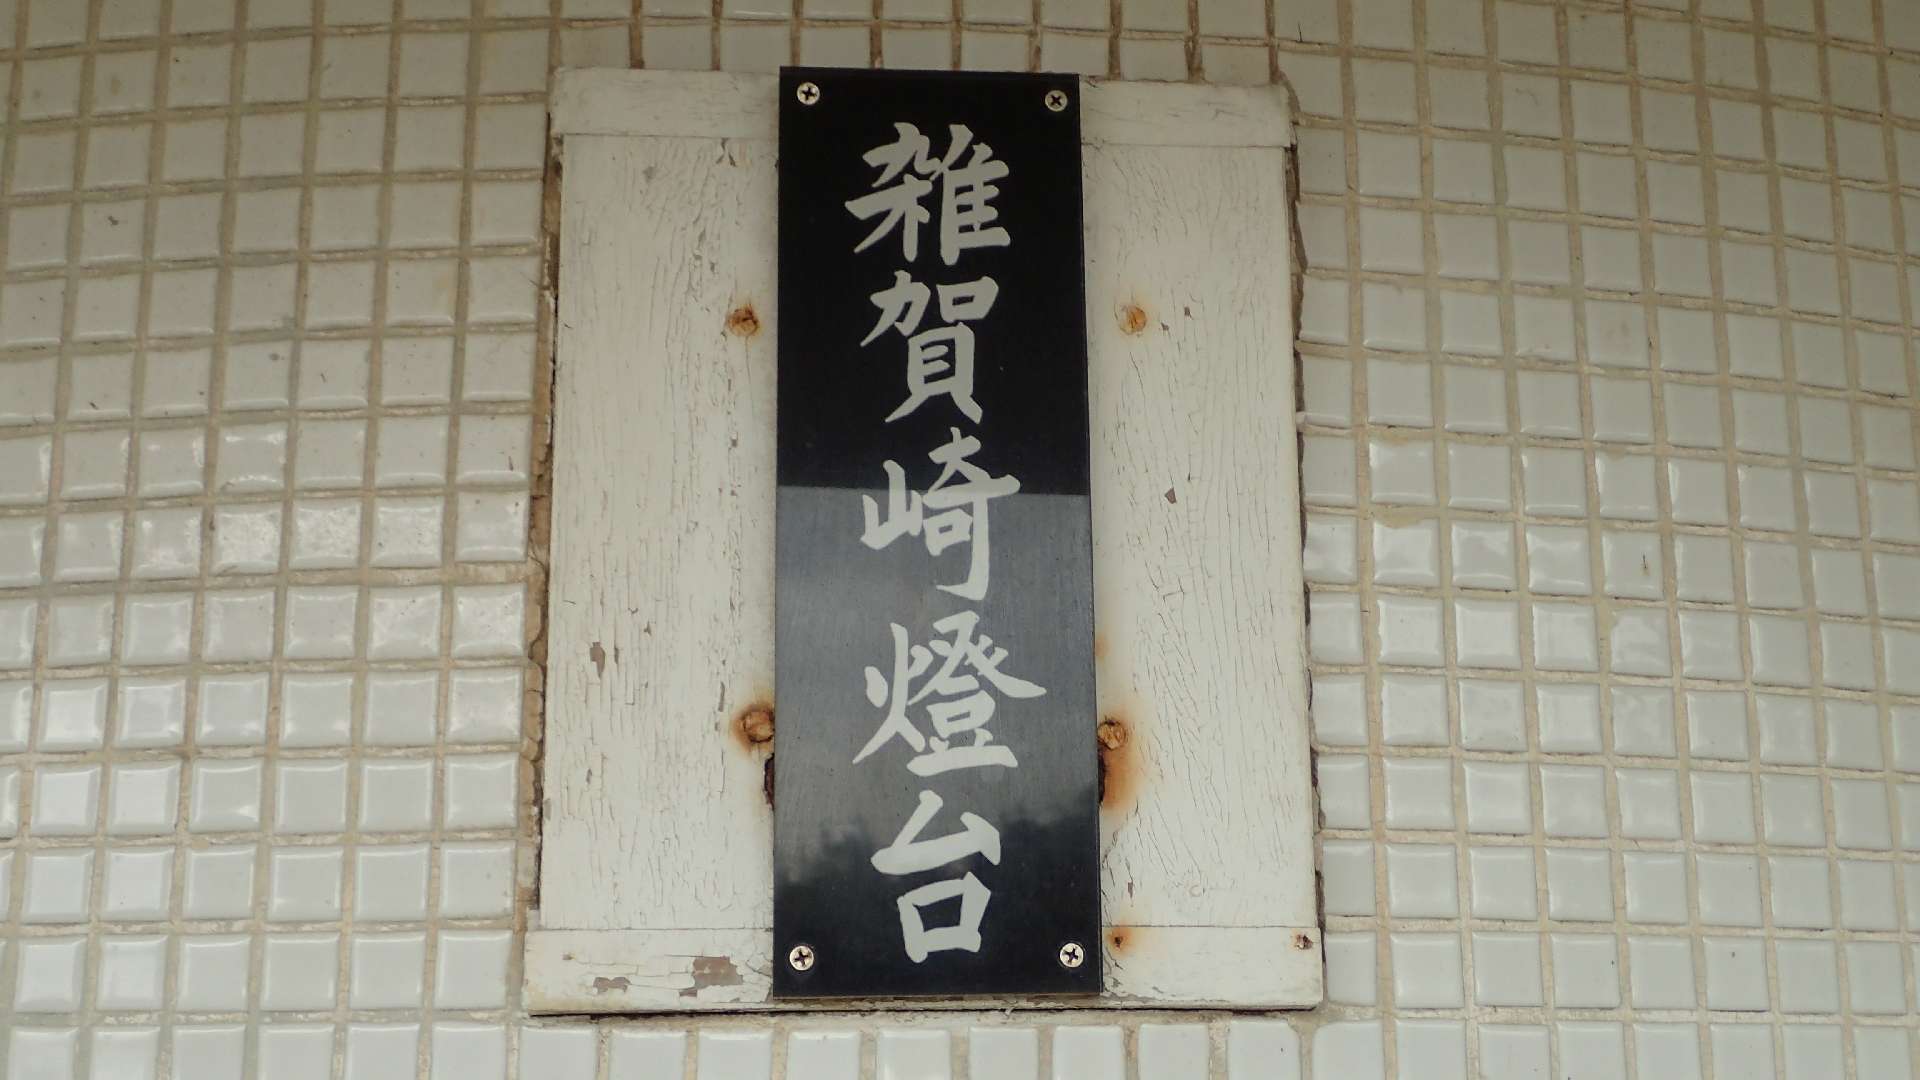 雑賀崎燈台